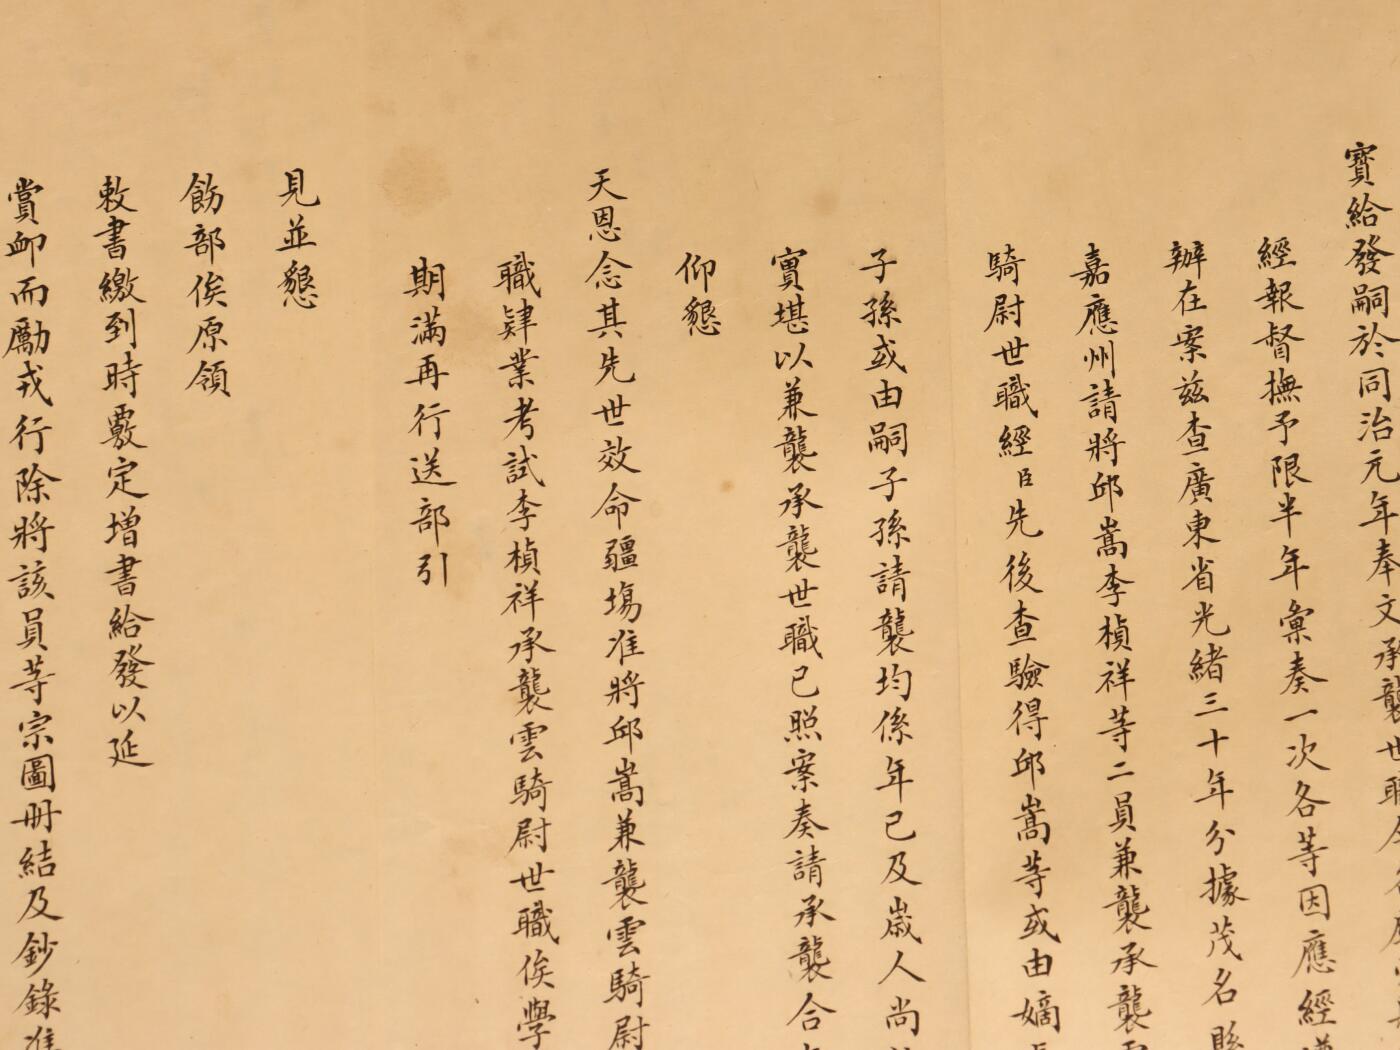 寶給發嗣於同治元年奉文承襲世職
經報督撫予限半年彙奏一次各等因應經
辦在案茲查廣東省光緒三十年分據茂名縣
嘉應州請將邱嵩李楨祥等二員兼襲承襲雲
騎尉世職經臣先後查驗得邱嵩等或由嫡
子孫或由嗣子孫請襲均係年已及歲人尚
實堪以兼襲承襲世職已照案奏請承襲合
仰懇
天恩念其先世效命疆塲准將邱嵩兼襲雲騎尉
職肄業考試李楨祥承襲雲騎尉世職俟學
期滿再行送部引
見並懇
飭部俟原領
敕書繳到時覈定增書給發以延
賞卹而勵戎行除將該員等宗圖冊結及鈔錄准